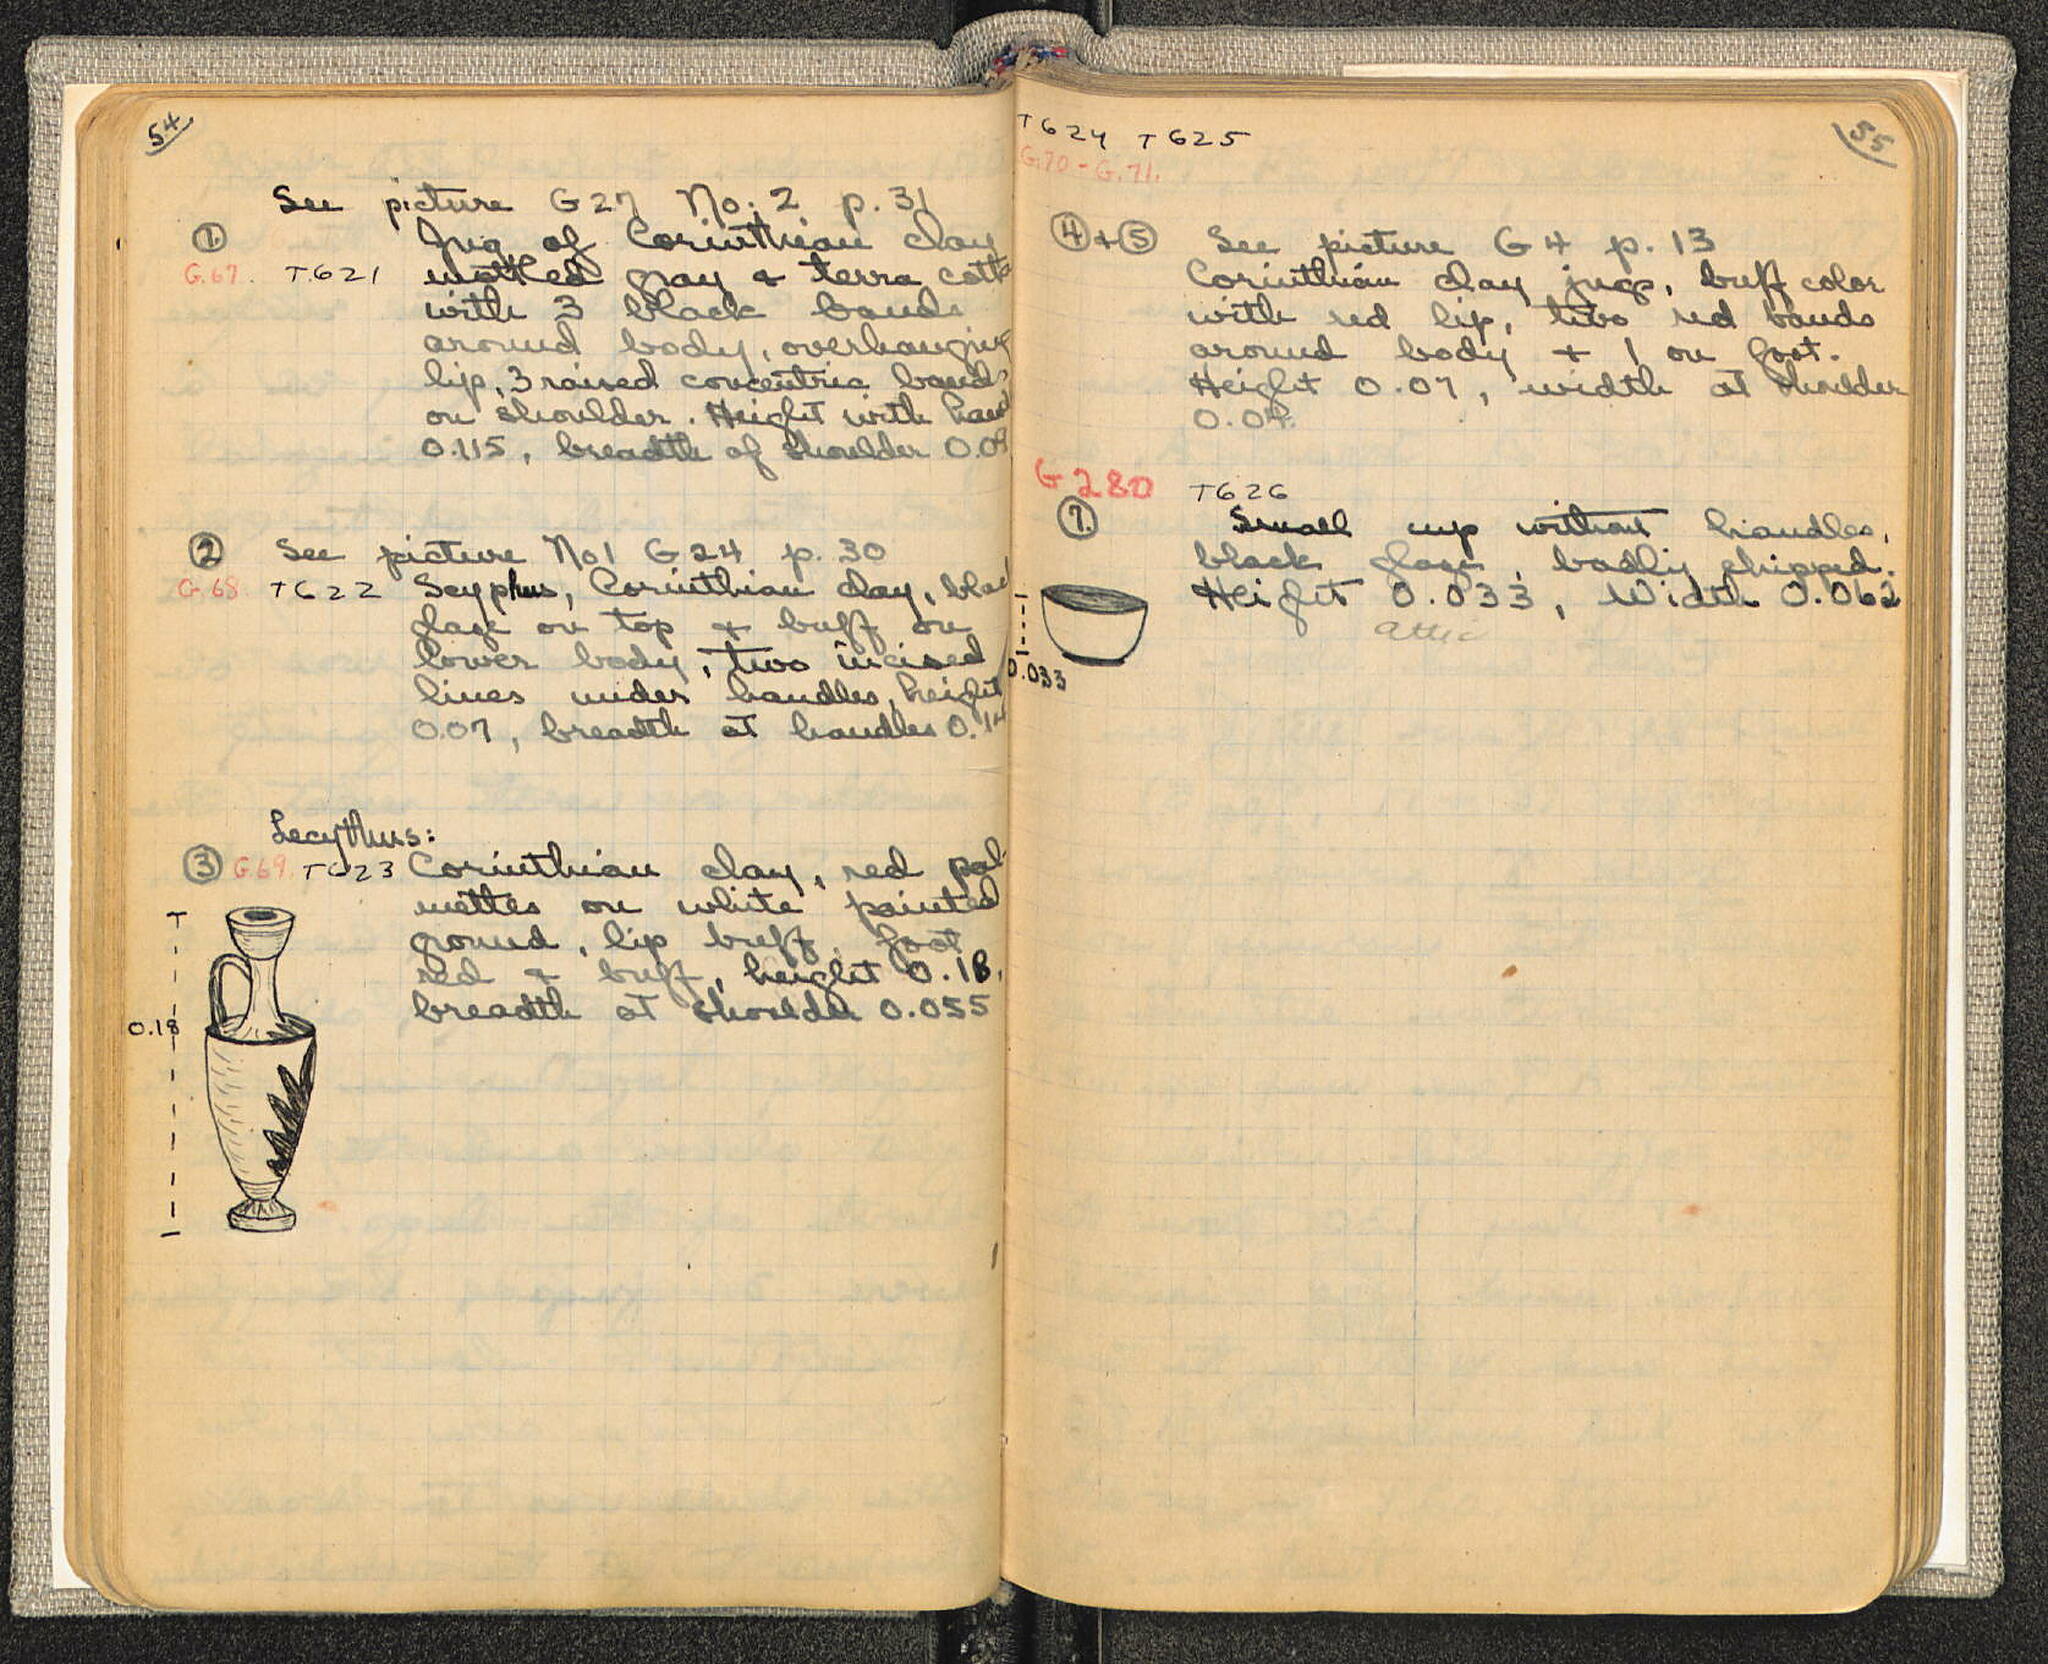 54
See picture G27 No. 2 p. 31
① Jug of Corinthian clay
G.67. T.621 mottled gray & terra cotta
with 3 black bands
around body, overhanging
lip, 3 raised concentric bands
on shoulder. Height with hand
0.115, breadth of shoulder 0.0
② See picture No 1 G24 p. 30
G.68. T622 Scyphus, Corinthian clay, black
glaze on top & buff on
lower body, two incised
lines under handles, height
0.07, breadth at handles 0.14
Lecythus:
③ G.69. T623 Corinthian clay, red pal-
mettes on white painted
ground, lip buff, foot
red & buff, height 0.18,
breadth at shoulder 0.055
0.18
55
T624 T625
G.70 - G.71.
④ + ⑤ See picture G4 p. 13
Corinthian clay jugs, buff color
with red lip, two red bands
around body & 1 on foot.
Height 0.07, width at shoulder
0.04.
G280 T626
⑦ Small cup without handles,
black glaze, badly chipped.
Height 0.033, Width 0.062
attic
0.033